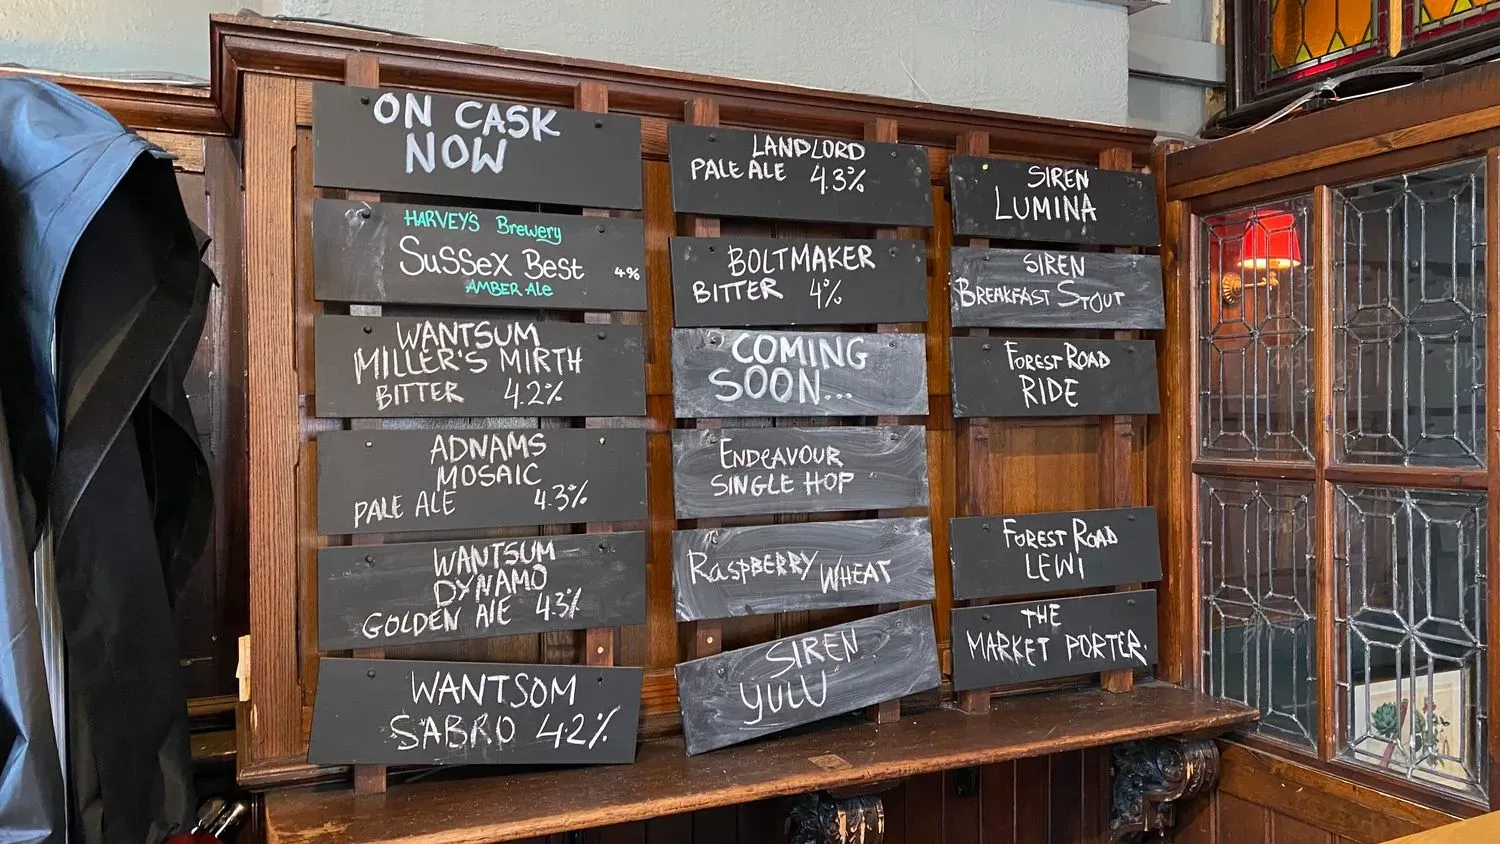 ON CASK
NOW
HARVEY'S Brewery
SUSSEX BEST 4%
AMBER ALE
WANTSUM
MILLER'S MIRTH
BITTER 4.2%
ADNAMS
MOSAIC
PALE ALE 4.3%
WANTSUM
DYNAMO
GOLDEN ALE 4.3%
WANTSOM
SABRO 4.2%
LANDLORD
PALE ALE 4.3%
BOLTMAKER
BITTER 4%
COMING
SOON...
ENDEAVOUR
SINGLE HOP
RASPBERRY WHEAT
SIREN
YULU
SIREN
LUMINA
SIREN
BREAKFAST STOUT
FOREST ROAD
RIDE
FOREST ROAD
LEWI
THE
MARKET PORTER.